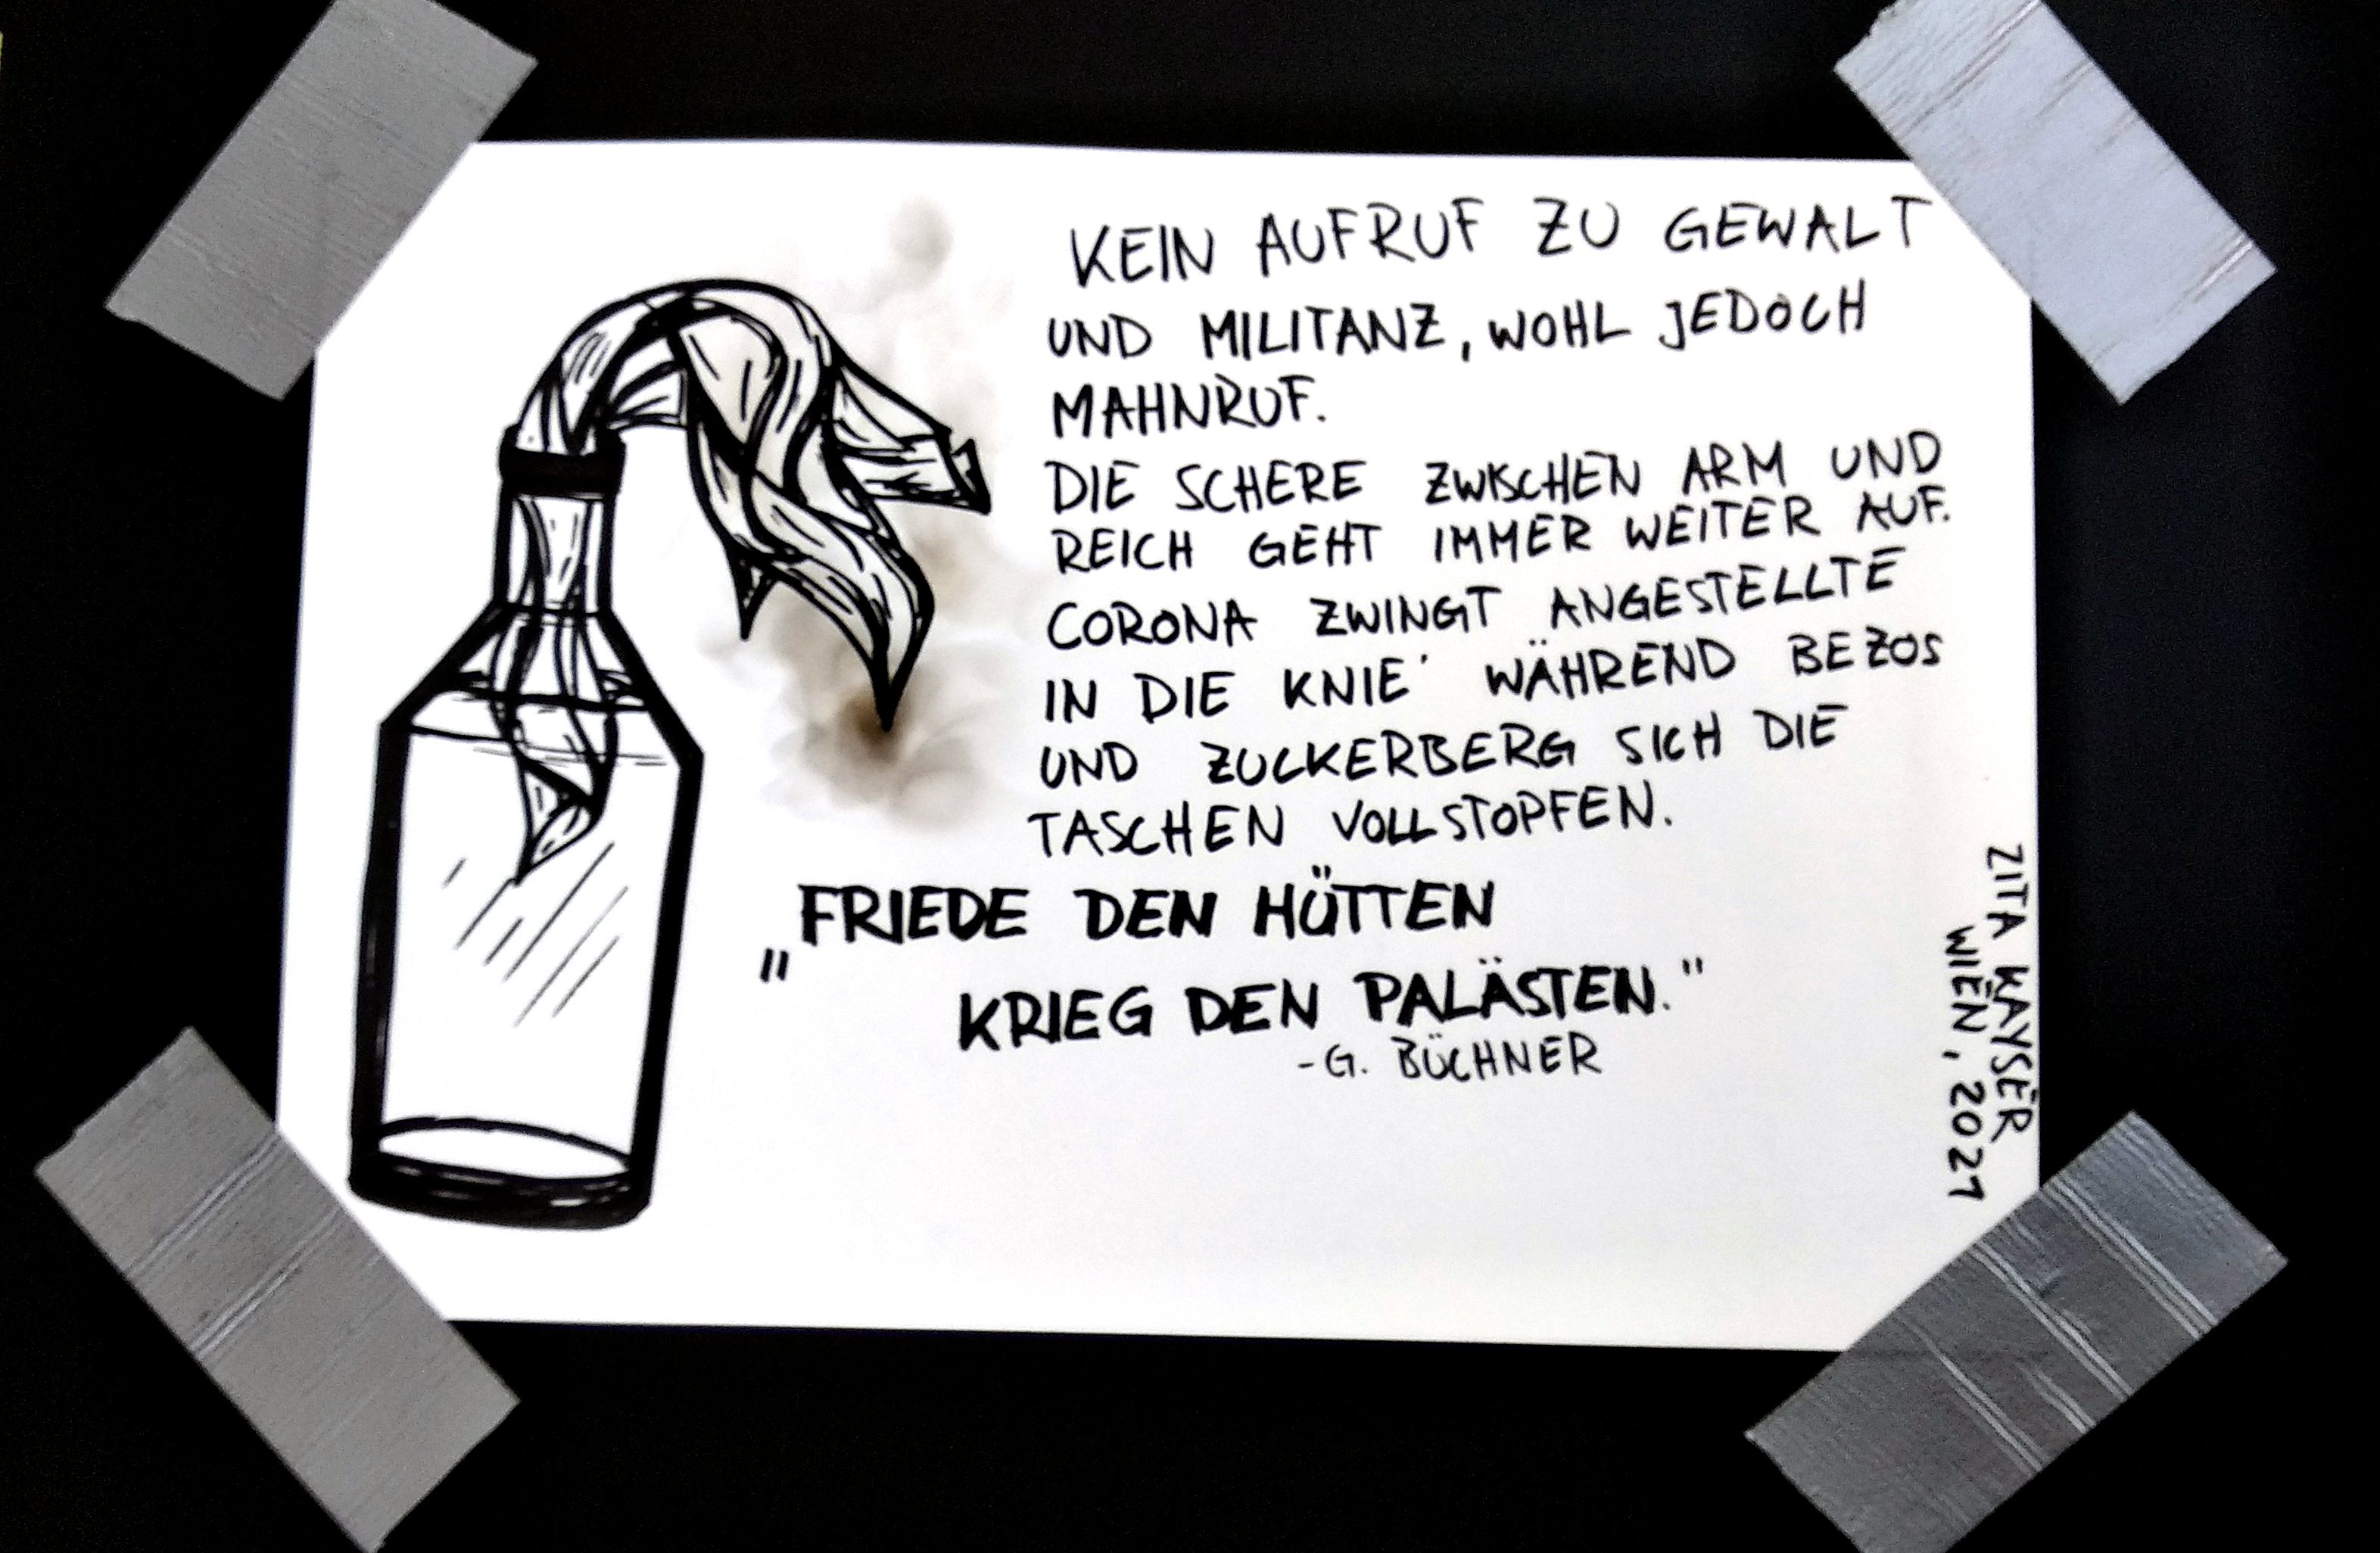 KEIN AUFRUF ZU GEWALT
UND MILITANZ, WOHL JEDOCH
MAHNRUF.
DIE SCHERE ZWISCHEN ARM UND
REICH GEHT IMMER WEITER AUF.
CORONA ZWINGT ANGESTELLTE
IN DIE KNIE' WÄHREND BEZOS
UND ZUCKERBERG SICH DIE
TASCHEN VOLLSTOPFEN.
"FRIEDE DEN HÜTTEN
KRIEG DEN PALÄSTEN."
-G. BÜCHNER
ZITA KAYSER
WIEN, 2021